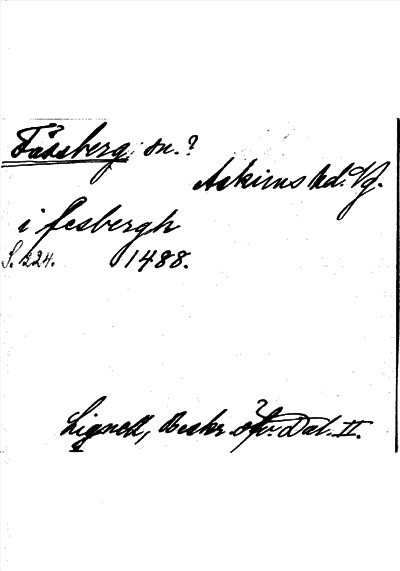 Fässberg sn.?
Askims hd. Vg.
i fesbergh
S. 224. 1488.
Lignell, Beskr. öfv. Dal. II.